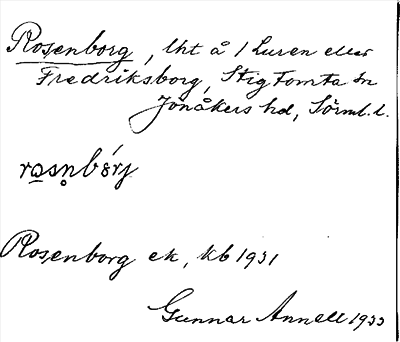 Rosenborg, lht å 1 Luren eller
Fredriksborg, Stigtomta sn
Jönåkers hd, Sörml. l.
Rosenborg ek, kb 1931
Gunnar Annell 1933